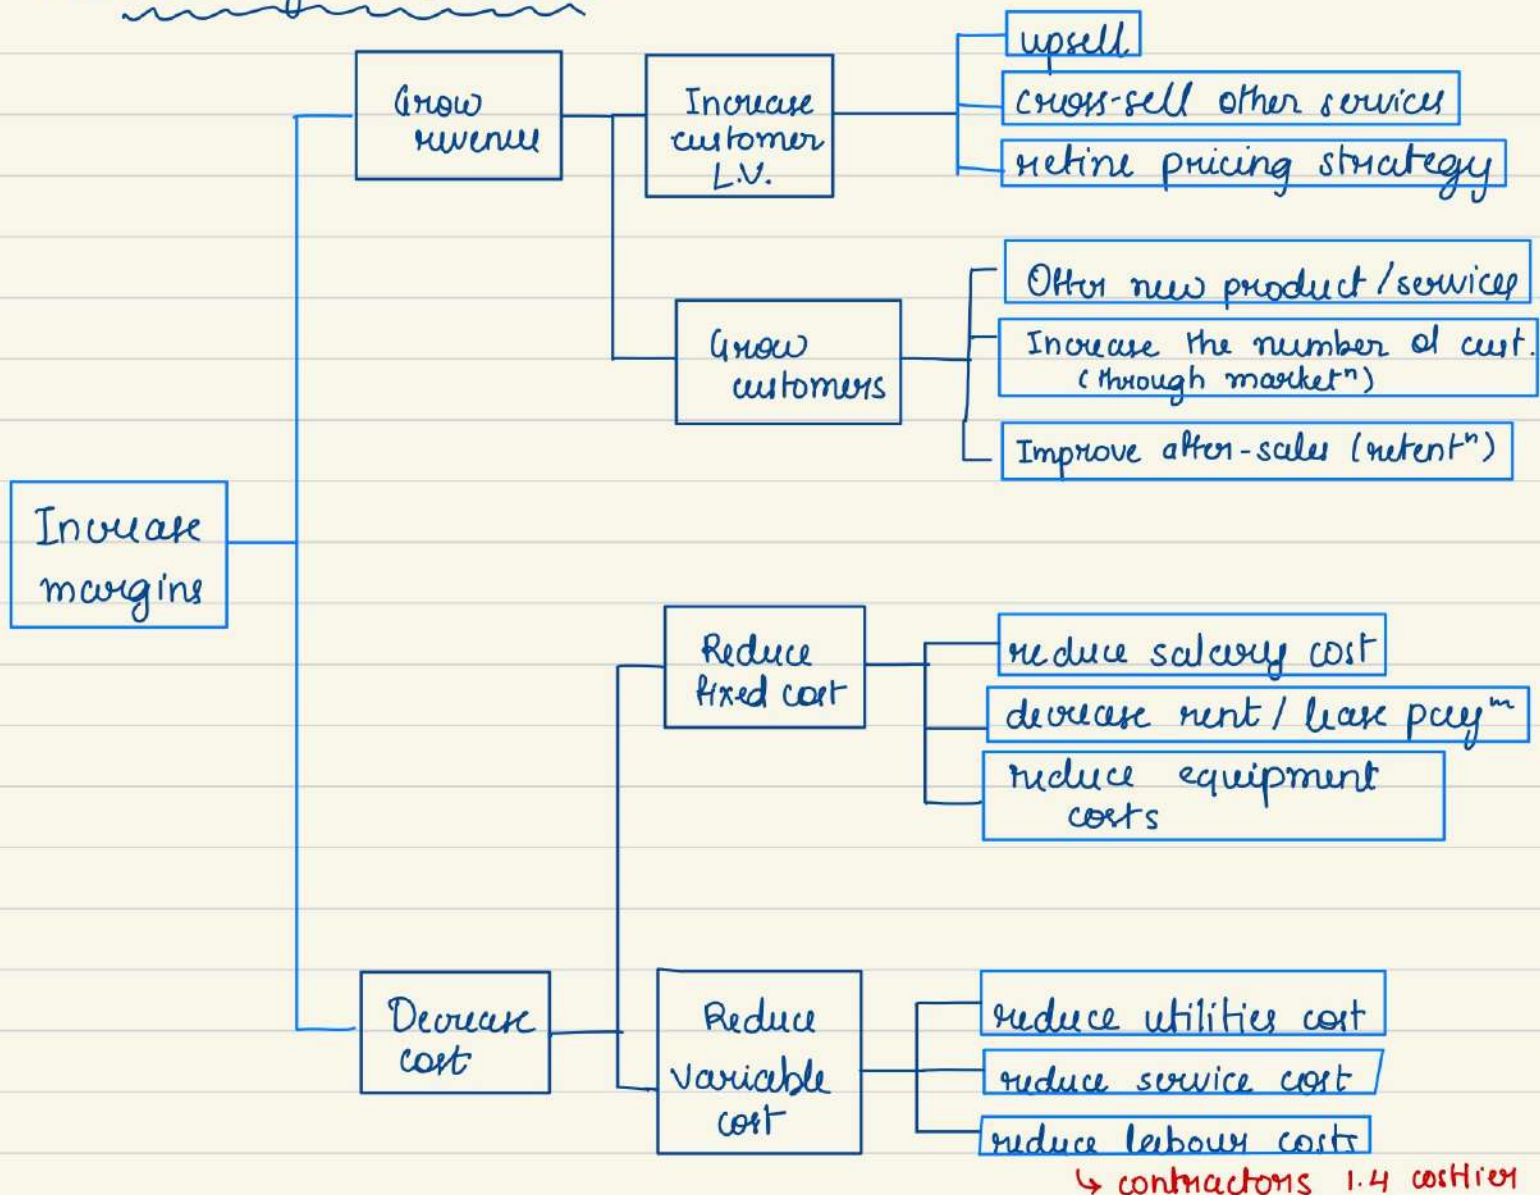 upsell
Grow
revenue
Increase
customer
L.V.
cross-sell other services
refine pricing strategy
Offer new product/services
Grow
customers
Increase the number of cust.
(through marketⁿ)
Improve after-sales (retentⁿ)
Increase
margins
Reduce
fixed cost
reduce salary cost
decrease rent / lease payᵐ
reduce equipment
costs
Decrease
cost
Reduce
variable
cost
reduce utilities cost
reduce service cost
reduce labour costs
↳ contractors 1.4 costlier